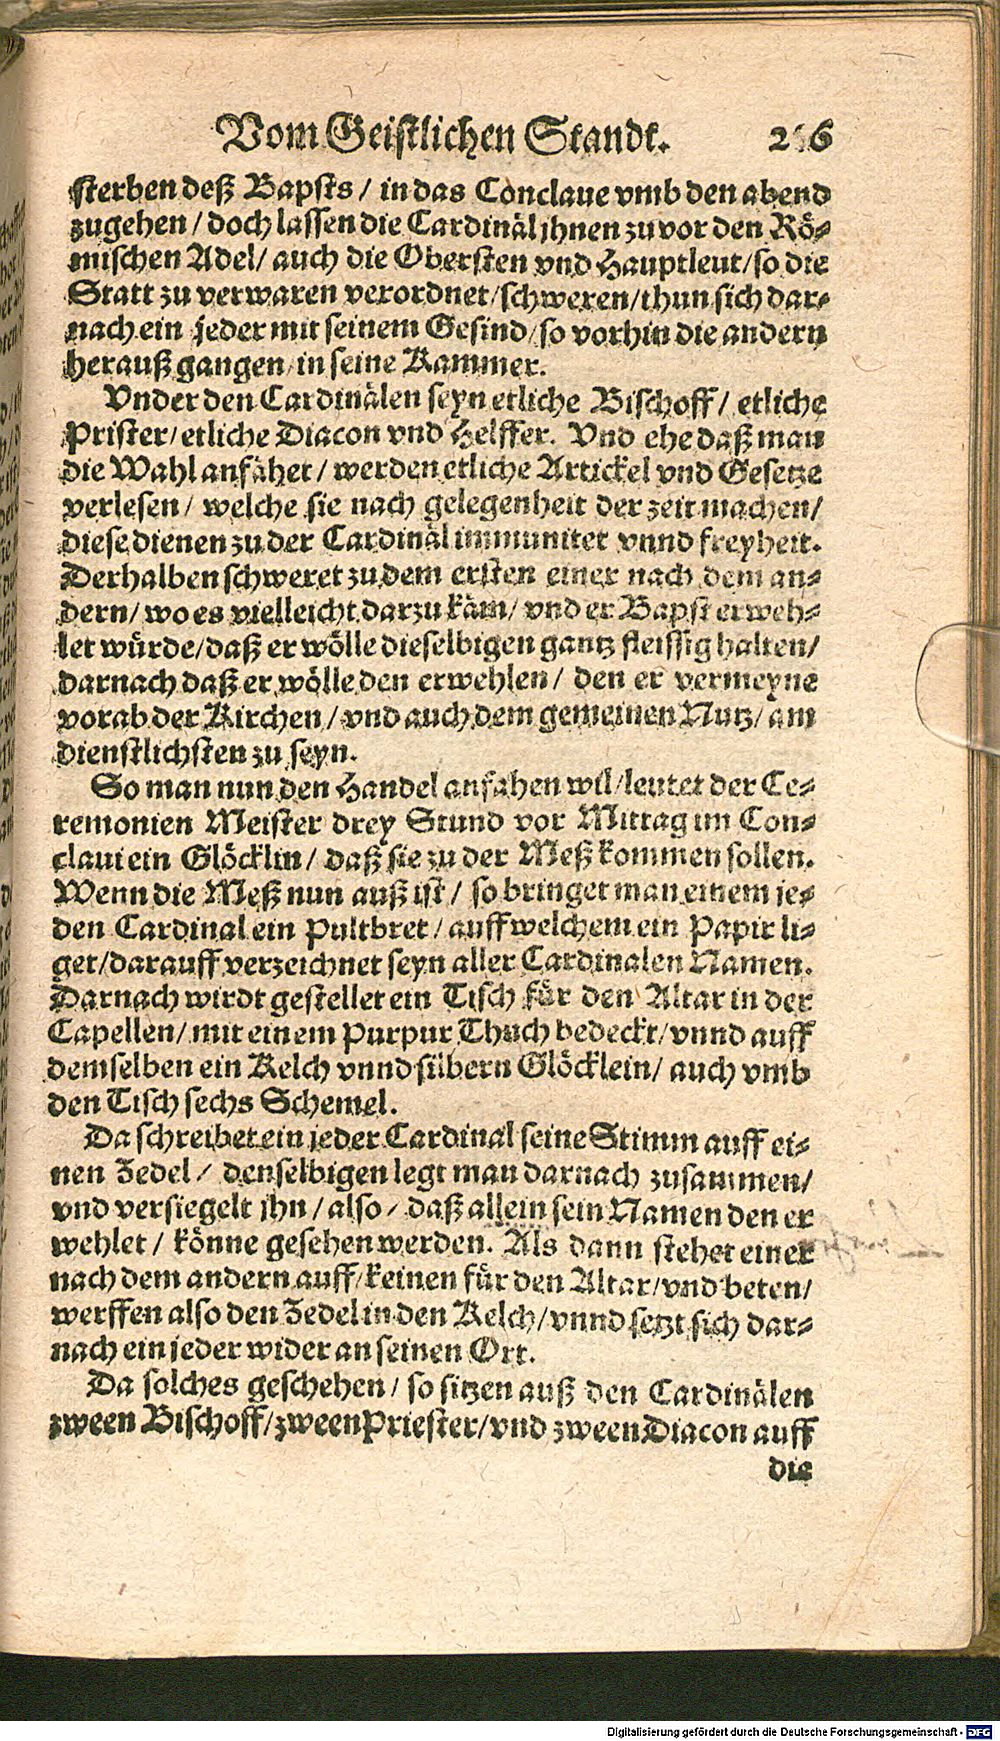 Vom Geistlichen Standt. 2 6
sterben deß Bapsts / in das Conclaue vmb den abend
zugehen / doch lassen die Cardinäl jhnen zuvor den Rö-
mischen Adel / auch die Obersten vnd Hauptleut / so die
Statt zu verwaren verordnet / schweren / thun sich dar-
nach ein jeder mit seinem Gesind / so vorhin die andern
herauß gangen / in seine Kammer.
Vnder den Cardinälen seyn etliche Bischoff / etliche
Prister / etliche Diacon vnd Helffer. Vnd ehe daß man
die Wahl anfähet / werden etliche Artickel vnd Gesetze
verlesen / welche sie nach gelegenheit der zeit machen /
diese dienen zu der Cardinäl immunitet vnnd freyheit.
Derhalben schweret zu dem ersten einer nach dem an-
dern / wo es vielleicht darzu käm / vnd er Bapst erweh-
let würde / daß er wölle dieselbigen gantz fleissig halten /
darnach daß er wölle den erwehlen / den er vermeyne
vorab der Kirchen / vnd auch dem gemeinen Nutz / am
dienstlichsten zu seyn.
So man nun den Handel anfahen wil / leutet der Ce-
remonien Meister drey Stund vor Mittag im Con-
claui ein Glöcklin / daß sie zu der Meß kommen sollen.
Wenn die Meß nun auß ist / so bringet man einem je-
den Cardinal ein Pultbret / auff welchem ein Papir li-
get / darauff verzeichnet seyn aller Cardinalen Namen.
Darnach wirdt gestellet ein Tisch für den Altar in der
Capellen / mit einem Purpur Thuch bedeckt / vnnd auff
demselben ein Kelch vnnd silbern Glöcklein / auch vmb
den Tisch sechs Schemel.
Da schreibet ein jeder Cardinal seine Stimm auff ei-
nen Zedel / denselbigen legt man darnach zusammen /
vnd versiegelt jhn / also / daß allein sein Namen den er
wehlet / könne gesehen werden. Als dann stehet einer
nach dem andern auff / keinen für den Altar / vnd beten /
werffen also den Zedel in den Kelch / vnnd setzt sich dar-
nach ein jeder wider an seinen Ort.
Da solches geschehen / so sitzen auß den Cardinälen
zween Bischoff / zween Priester / vnd zween Diacon auff
die
Digitalisierung gefördert durch die Deutsche Forschungsgemeinschaft - DFG